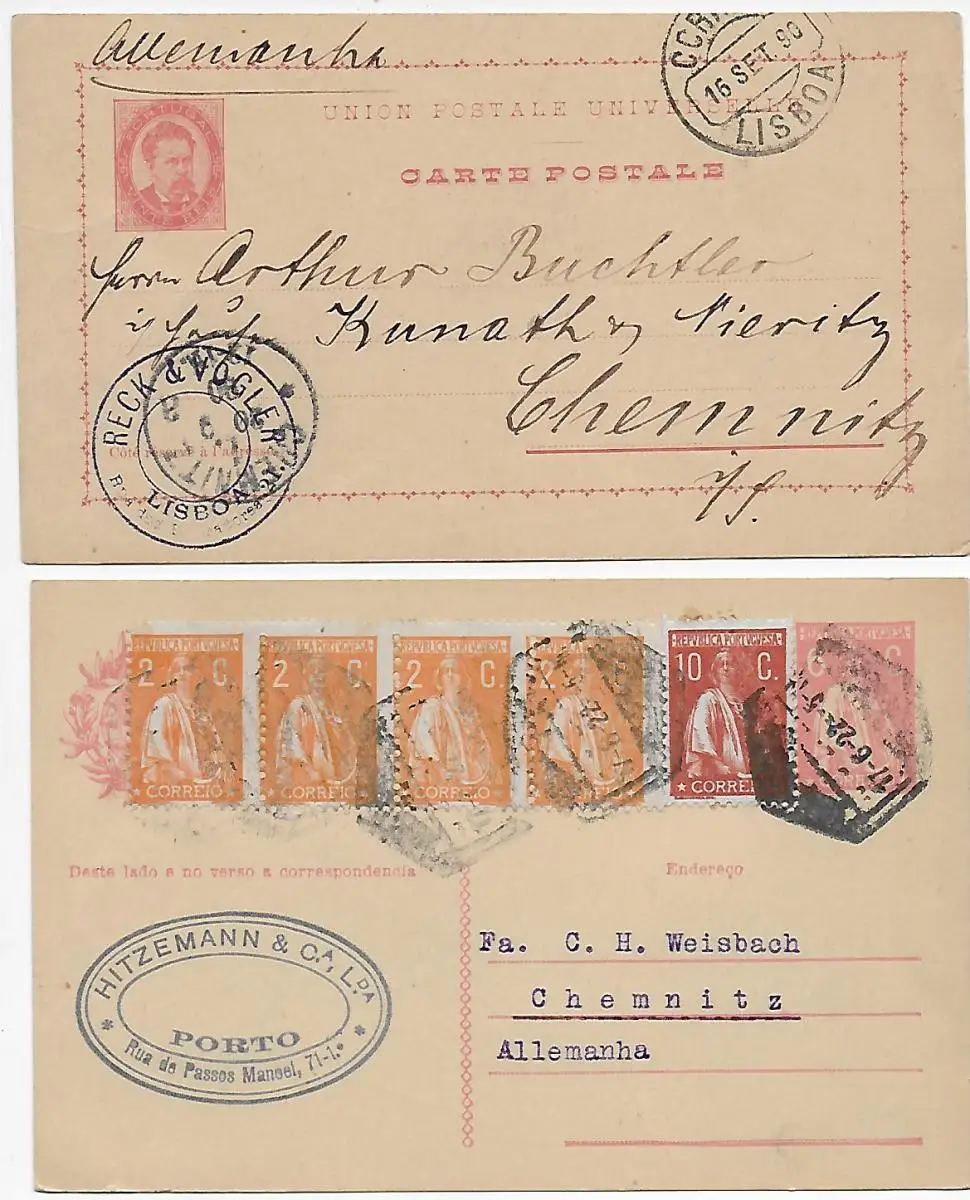 Allemanha
CORR
16 SET. 90
LISBOA
UNION POSTALE UNIVERSELLE
CARTE POSTALE
PORTUGAL
VINTE REIS
Herrn Arthur Buchtler
Kunath & Nieritz
Chemnitz
i/S.
RECK & VOGLER
LISBOA
CHEMNITZ
Côté réservé à l'adresse
REPVBLICA PORTVGVESA
2 C.
CORREIO
REPVBLICA PORTVGVESA
2 C.
CORREIO
REPVBLICA PORTVGVESA
2 C.
CORREIO
REPVBLICA PORTVGVESA
2 C.
CORREIO
REPVBLICA PORTVGVESA
10 C.
CORREIO
REPVBLICA PORTVGVESA
6 C.
-6-22
Deste lado e no verso a correspondencia
Endereço
HITZEMANN & C.A, L.DA
PORTO
Rua de Passos Manoel, 71-1.º
Fa. C. H. Weisbach
Chemnitz
Allemanha